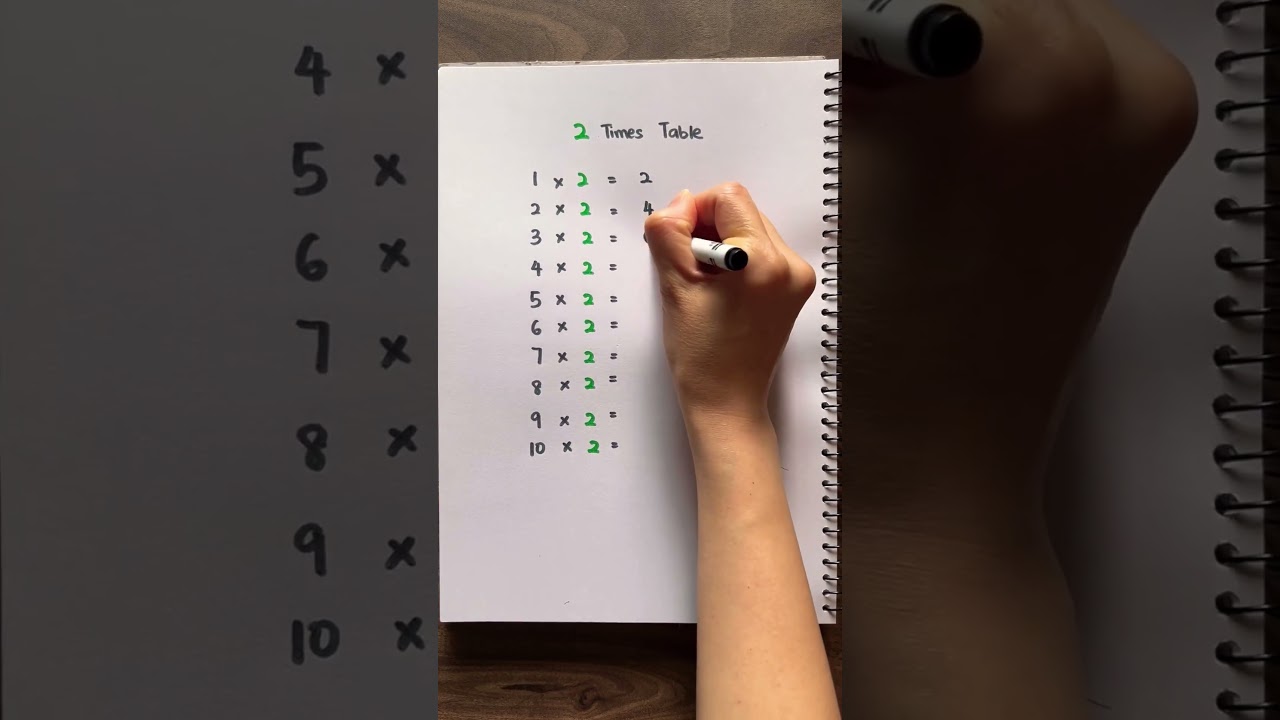 2 Times Table
1 × 2 = 2
2 × 2 = 4
3 × 2 =
4 × 2 =
5 × 2 =
6 × 2 =
7 × 2 =
8 × 2 =
9 × 2 =
10 × 2 =
4 ×
5 ×
6 ×
7 ×
8 ×
9 ×
10 ×